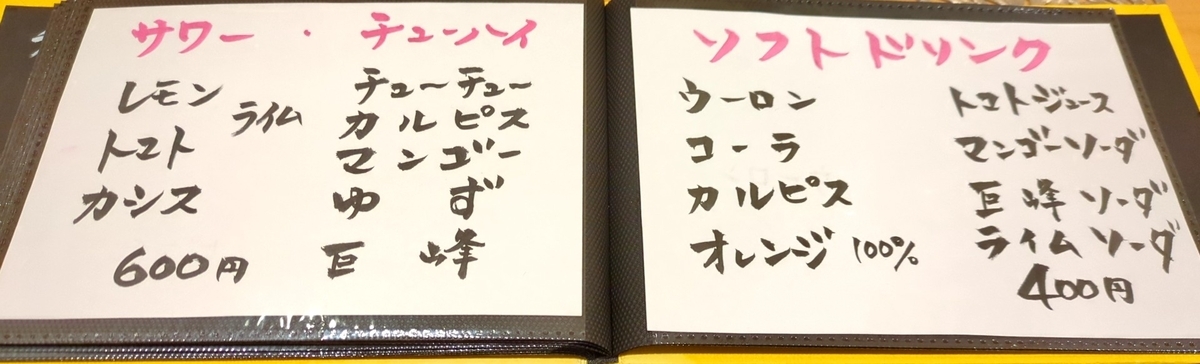 サワー・チューハイ
レモン
ライム
トマト
カシス
600円
チューチュー
カルピス
マンゴー
ゆず
巨峰
ソフトドリンク
ウーロン
コーラ
カルピス
オレンジ 100%
トマトジュース
マンゴーソーダ
巨峰ソーダ
ライムソーダ
400円